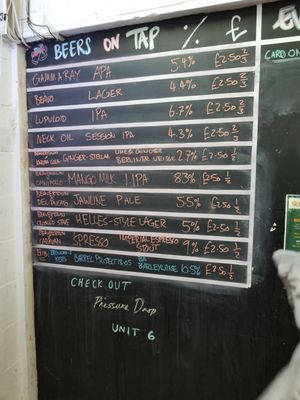 BEERS ON TAP % £
GAMMA RAY APA 5.4% £2.50 2/3
LAGER 4.4% £2.50 2/3
LUPULOID IPA 6.7% £2.50 2/3
NECK OIL SESSION IPA 4.3% £2.50 2/3
GINGER-STELLAR LIME & GINGER BERLINER WEISSE 2.7% £2.50 1/2
MANGO MILK IPA 8.3% £2.50 1/2
JAWLINE PALE 5.5% £2.50 1/2
HELLES-STYLE LAGER 5% £2.50 1/2
SPRESSO IMPERIAL ESPRESSO STOUT 9% £2.50 1/2
BARREL PROJECT BA BARLEYWINE 10.5% £2.50 1/2
CHECK OUT
Pressure Drop
UNIT 6
CARD ON